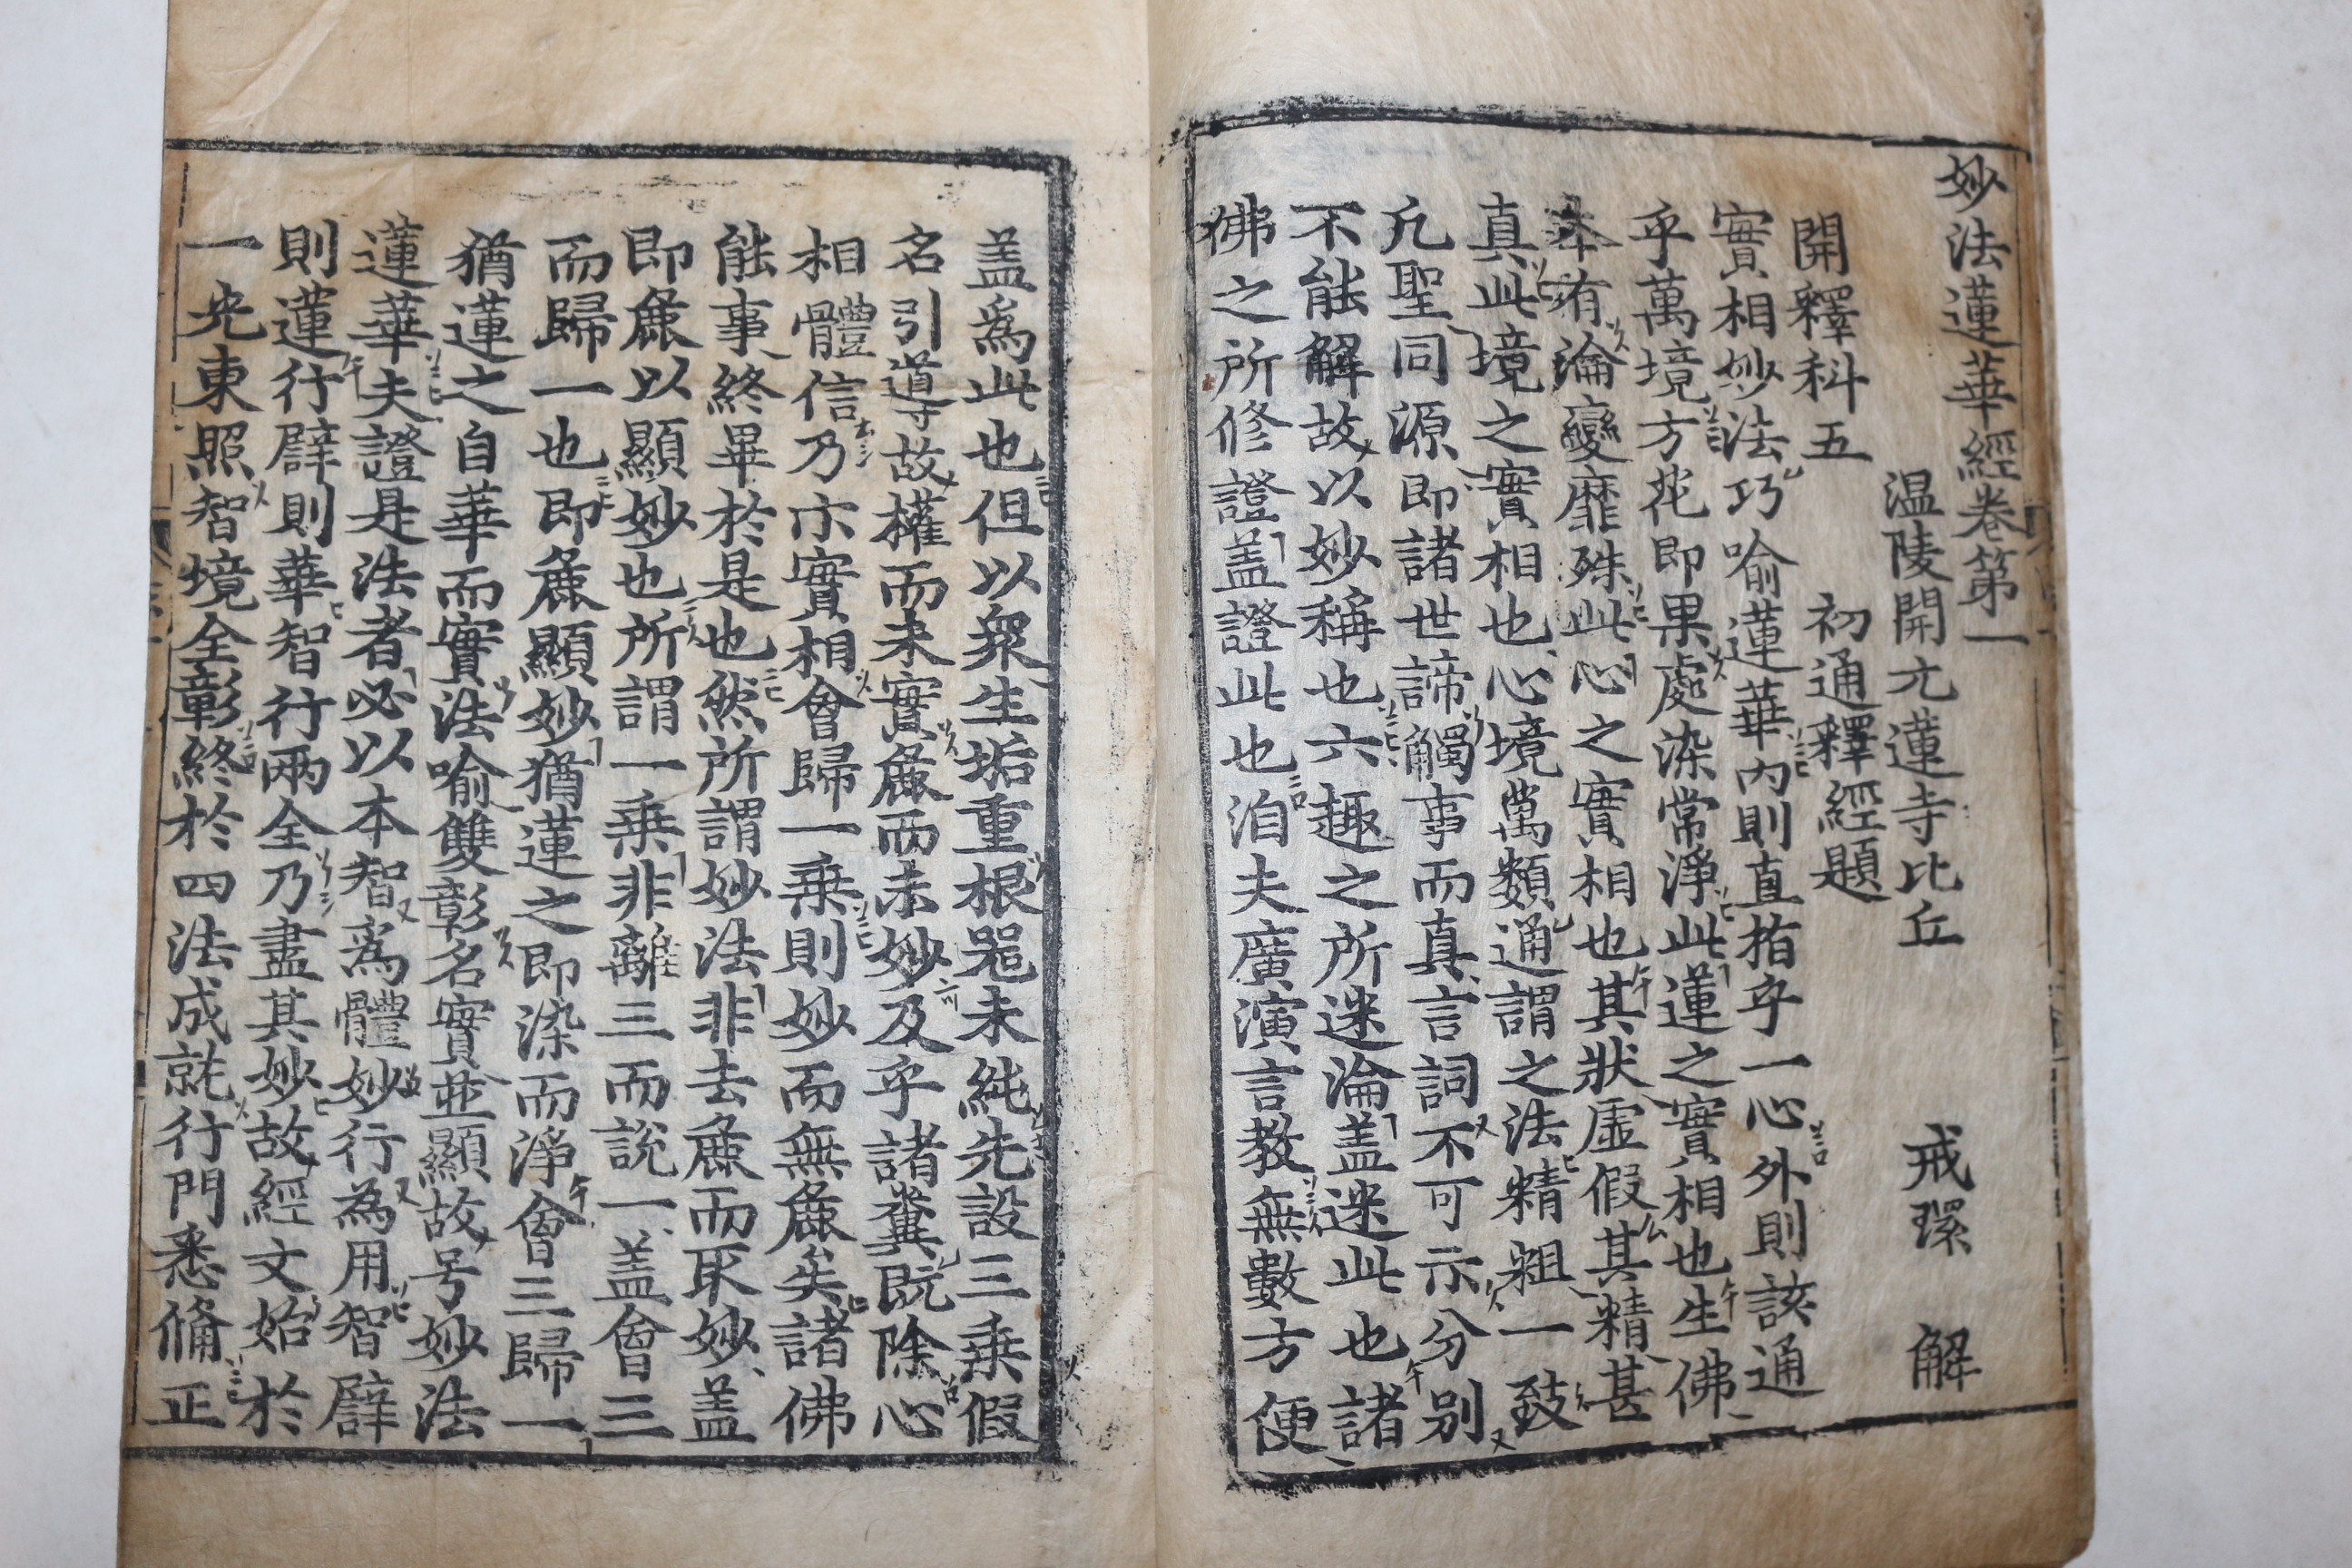 妙法蓮華經卷第一
温陵開元蓮寺比丘 戒環 解
開釋科五 初通釋經題
實相妙法巧喻蓮華內則直指乎一心外則該通
乎萬境方花即果處染常淨此蓮之實相也生佛
本有淪變靡殊此心之實相也其狀虛假其精甚
真此境之實相也心境萬類通謂之法精粗一致
凢聖同源即諸世諦觸事而真言詞不可示分別
不能解故以妙稱也六趣之所迷淪盖迷此也諸
佛之所修證盖證此也洎夫廣演言教無數方便
盖爲此也但以衆生垢重根器未純先設三乗假
名引導故權而未實麁而未妙及乎諸糞既除心
相體信乃示實相會歸一乗則妙而無麁矣諸佛
能事終畢於是也然所謂妙法非去麁而取妙盖
即麁以顯妙也所謂一乗非離三而說一盖會三
而歸一也即麁顯妙猶蓮之即染而淨會三歸一
猶蓮之自華而實法喻雙彰名實並顯故号妙法
蓮華夫證是法者必以本智爲體妙行為用智譬
則蓮行譬則華智行兩全乃盡其妙故經文始於
一光東照智境全彰終於四法成就行門悉俻正